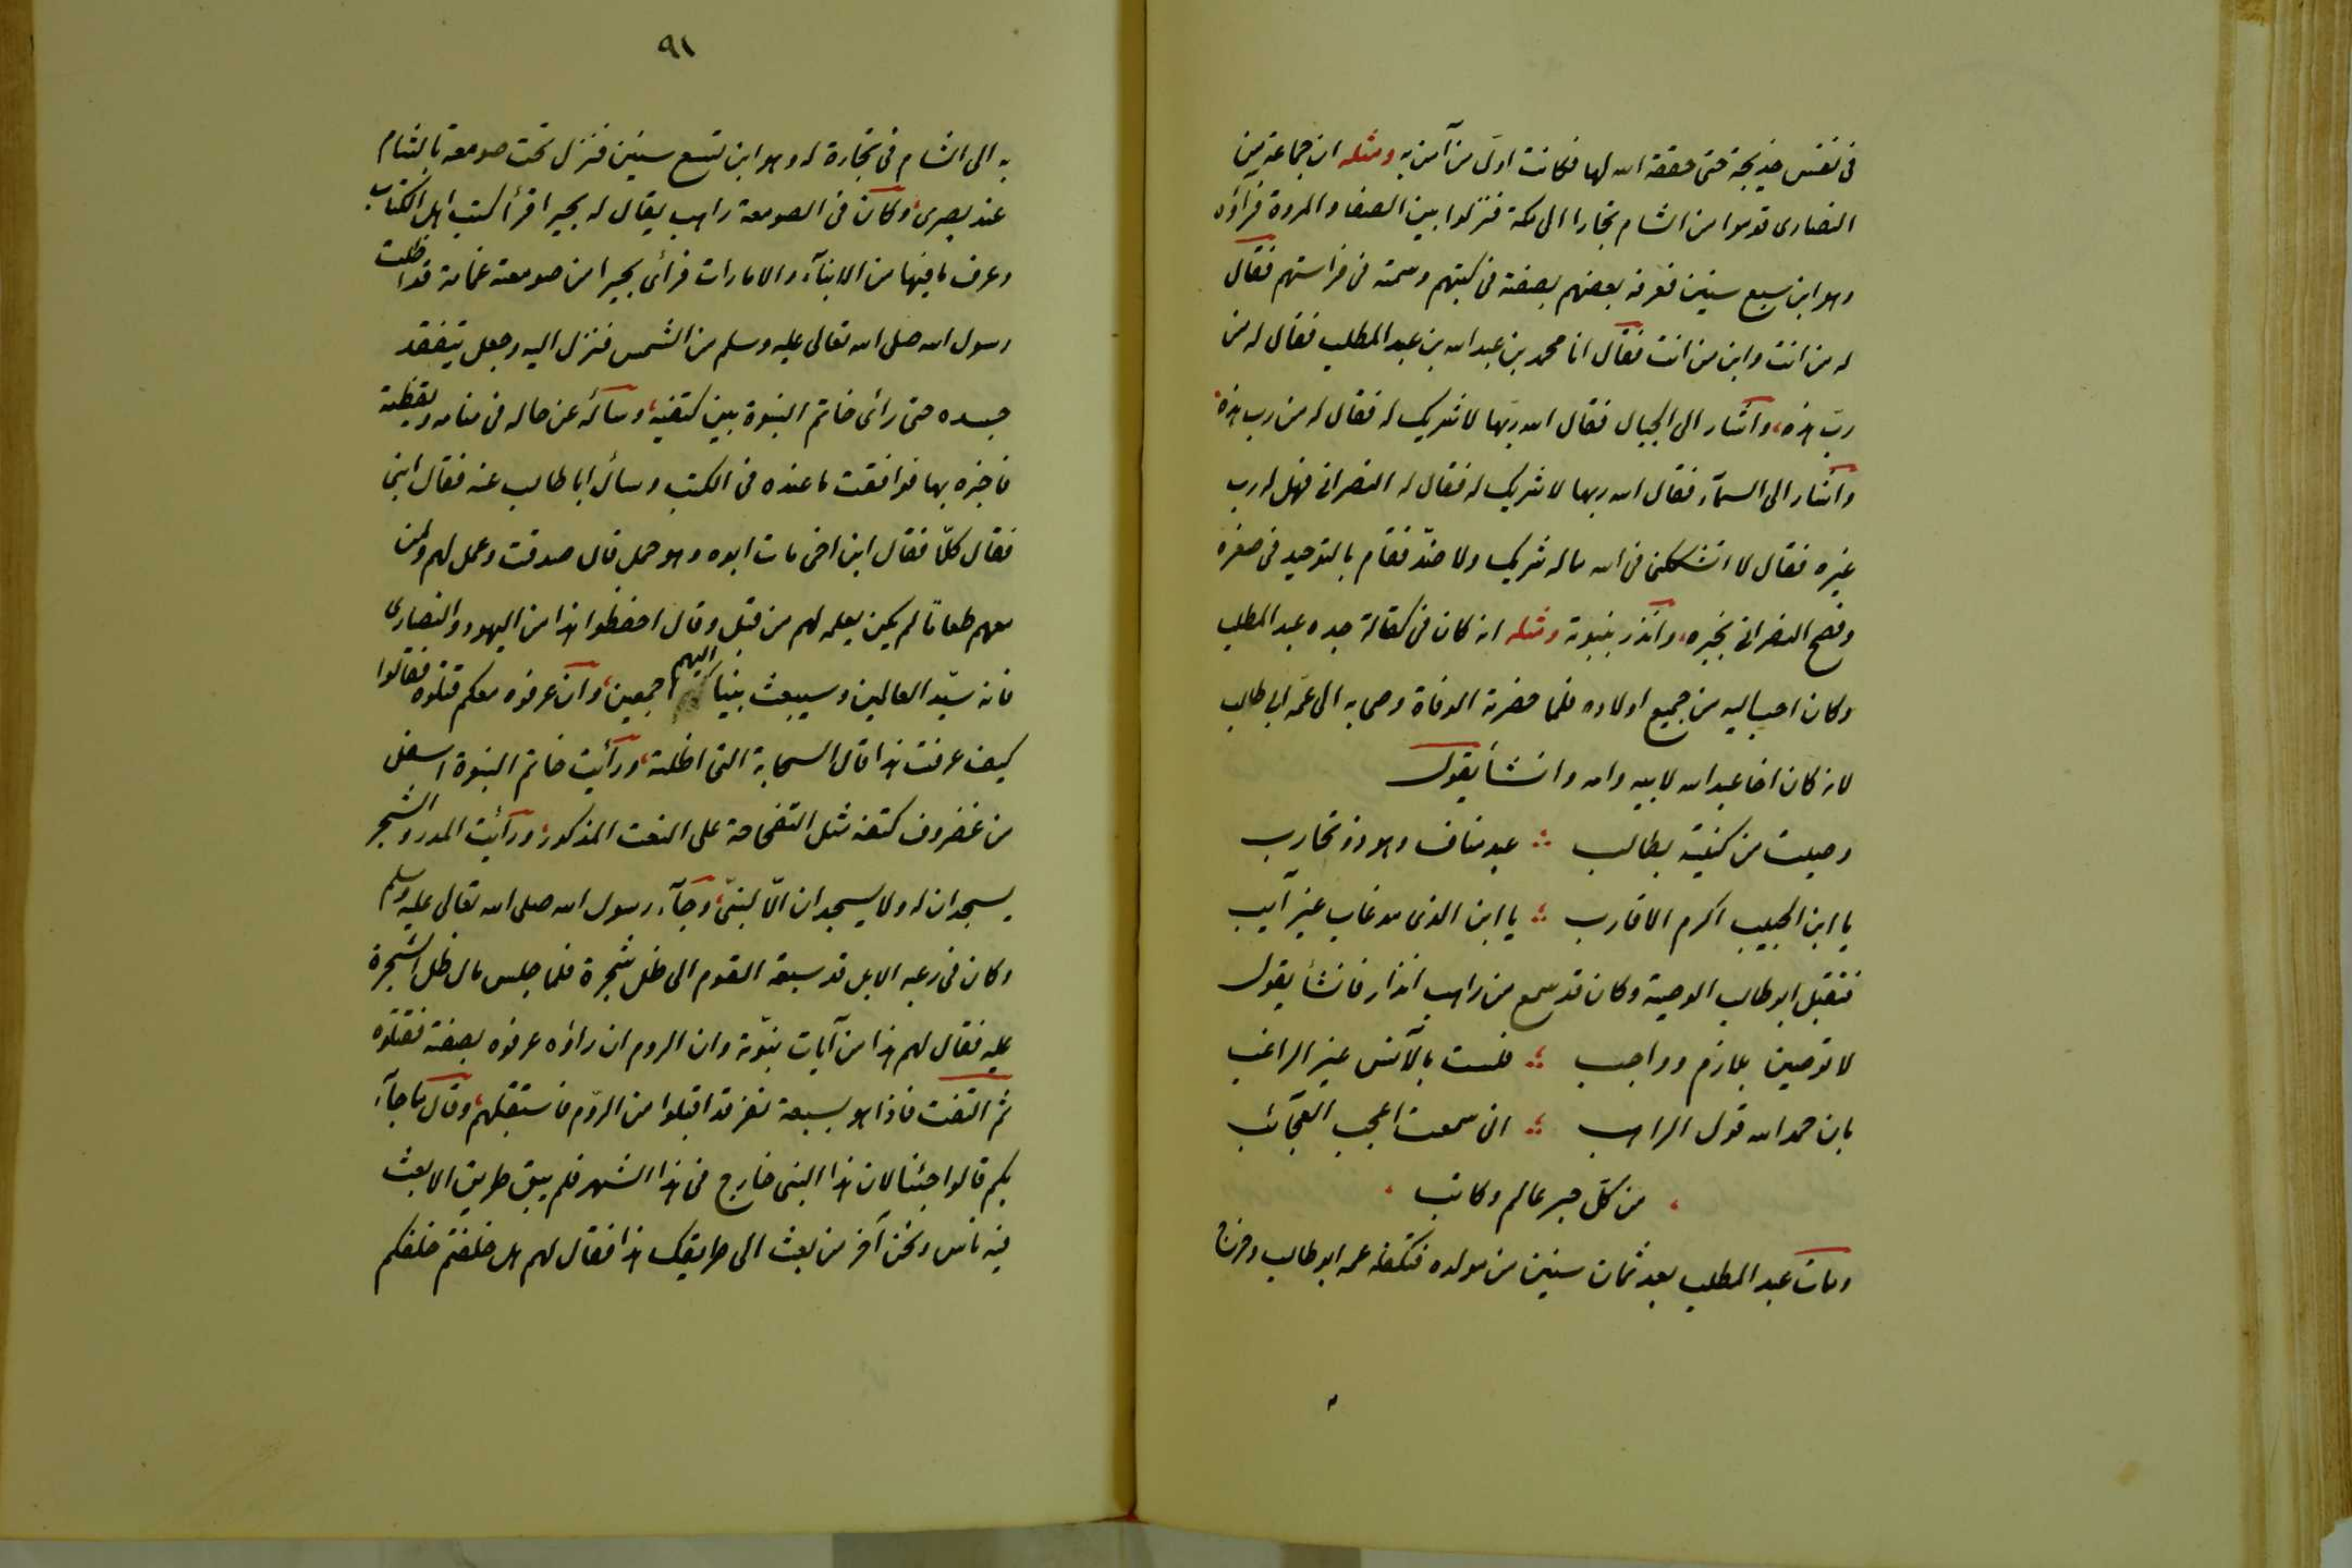 فى نفس خديجة حتى حققه الله لها فكانت اول من آمن به ومثله ان جماعة من
النصارى قدموا من الشام تجارا الى مكة فنزلوا بين الصفا والمروة فرآؤه
وهو ابن سبع سنين فعرفه بعضهم بصفته فى كتبهم وسمته فى فراستهم فقال
له من انت وابن من انت فقال انا محمد بن عبد الله بن عبد المطلب فقال له من
ربّ هذه، واشار الى الجبال فقال الله ربّها لا شريك له فقال له من رب هذه
واشار الى السمآء فقال الله ربها لا شريك له فقال له النصرانى فهل له رب
غيره فقال لا تشككنى فى الله ما له شريك ولا ضدّ فقام بالتوحيد فى صغره
وفصح النصرانى بخبره، وانذر بنبوته ومثله انه كان فى كفالة جده عبد المطلب
وكان احب اليه من جميع اولاده فلما حضرته الوفاة وصى به الى عمّه ابى طالب
لانه كان اخا عبد الله لابيه وامه وانشأ يقول
وصيت من كنيته بطالب ؞ عبد مناف وهو ذو تجارب
يا ابن الحبيب اكرم الاقارب ؞ يا ابن الذى قد غاب غير آيب
فتقبل ابو طالب الوصية وكان قد سمع من راهب انذار فانشأ يقول
لا توصين بلازم وواجب ؞ فلست بالآنس غير الراغب
بان حمد الله قول الراهب ؞ انى سمعت اعجب العجآئب
، من كلّ حبر عالم وكاتب ،
ومات عبد المطلب بعد ثمان سنين من مولده فتكفله عمه ابو طالب وخرج
٩١
به الى الشام فى تجارة له وهو ابن تسع سنين فنزل تحت صومعة بالشام
عند بصرى، وكان فى الصومعة راهب يقال له بحيرا قرأ كتب اهل الكتاب
وعرف ما فيها من الانبآء والامارات فرأى بحيرا من صومعته غمامة قد اظلت
رسول الله صلى الله تعالى عليه وسلم من الشمس فنزل اليه وجعل يتفقد
جسده حتى رأى خاتم النبوة بين كتفيه، وسأله عن حاله فى منامه ويقظته
فاخبره بها فوافقت ما عنده فى الكتب وسأل ابا طالب عنه فقال ابنى
فقال كلّا فقال ابن اخى مات ابوه وهو حمل قال صدقت وعمل لهم ولمن
معهم طعاما لم يكن يعمله لهم من قبل وقال احفظوا هذا من اليهود والنصارى
فانه سيّد العالمين وسيبعث نبيا اليهم اجمعين، وان عرفوه معكم قتلوه فقالوا
كيف عرفت هذا قال السحابة التى اظلته، ورأيت خاتم النبوة اسفل
من غضروف كتفه مثل التفاحة على النعت المذكور، ورأيت المدر والشجر
يسجدان له ولا يسجدان الّا لنبىّ، وجآء رسول الله صلى الله تعالى عليه وسلم
وكان فى رعيه الابل قد سبقه القوم الى ظل شجرة فلما جلس مال ظل الشجرة
عليه فقال لهم هذا من آيات نبوّته وان الروم ان رأوه عرفوه بصفته فقتلوه
ثم التفت فاذا هو بسبعة نفر قد اقبلوا من الروم فاستقبلهم، وقال ما جآء
بكم قالوا جئنا لان هذا النبى خارج فى هذا الشهر فلم يبق طريق الا بعث
فيه ناس ونحن آخر من بعث الى طريقك هذا فقال لهم هل خلفتم خلفكم